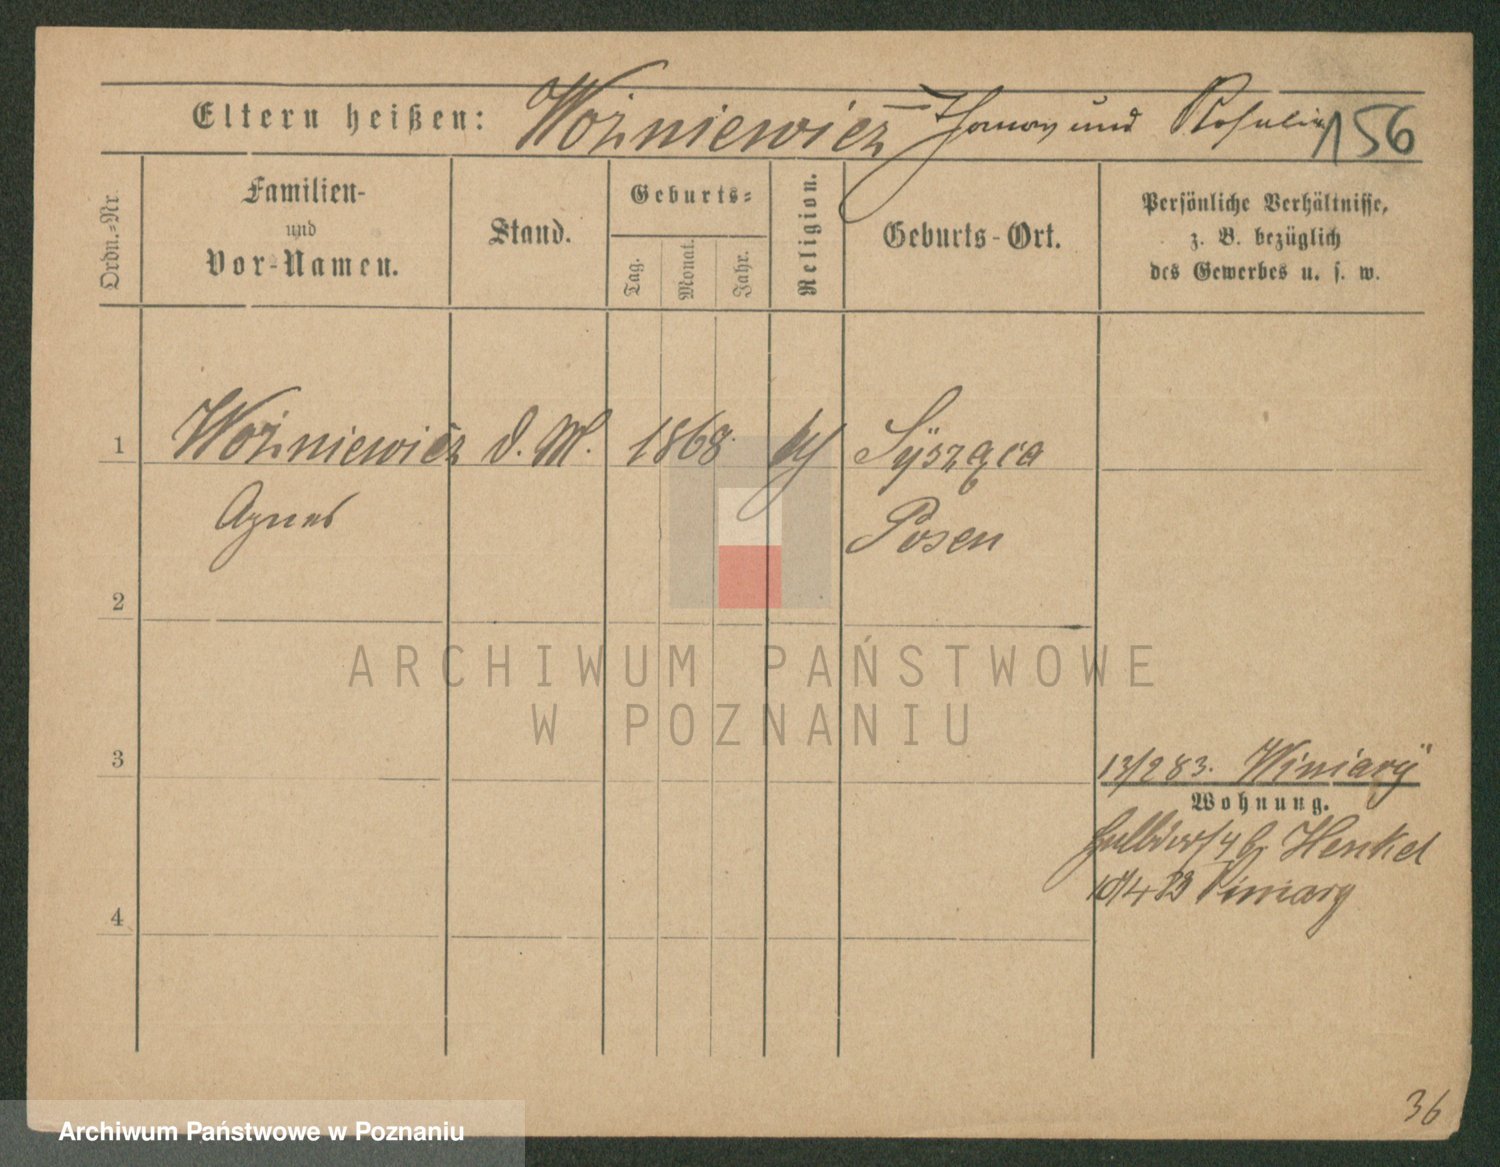 Eltern heißen: Woźniewicz Thomas und Rosalia 156
Ordn.-Nr.
Familien-
und
Vor-Namen.
Stand.
Geburts-
Tag.
Monat.
Jahr.
Religion.
Geburts-Ort.
Persönliche Verhältnisse,
z. B. bezüglich
des Gewerbes u. s. w.
1 Woźniewicz d. M. 1868
Agnes
Posen
2
3
4
13/2 83. Winiary
Wohnung.
Henkel
Winiary
ARCHIWUM PAŃSTWOWE
W POZNANIU
36
Archiwum Państwowe w Poznaniu